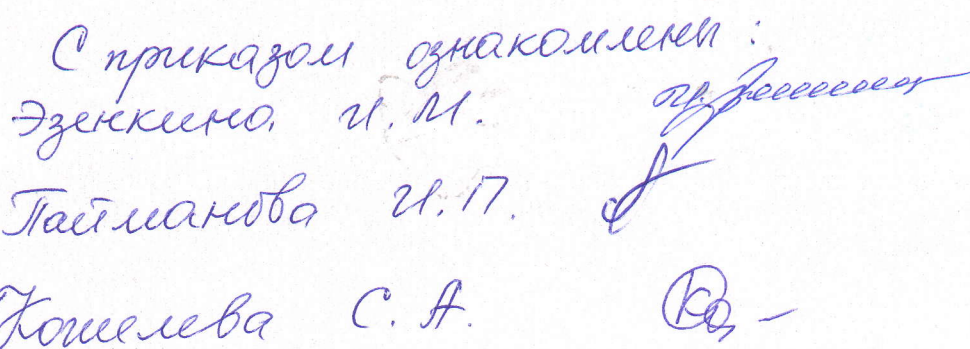 С приказом ознакомлены:
Эзенкина И.М.
Пайманова И.П.
Кошелева С.А.